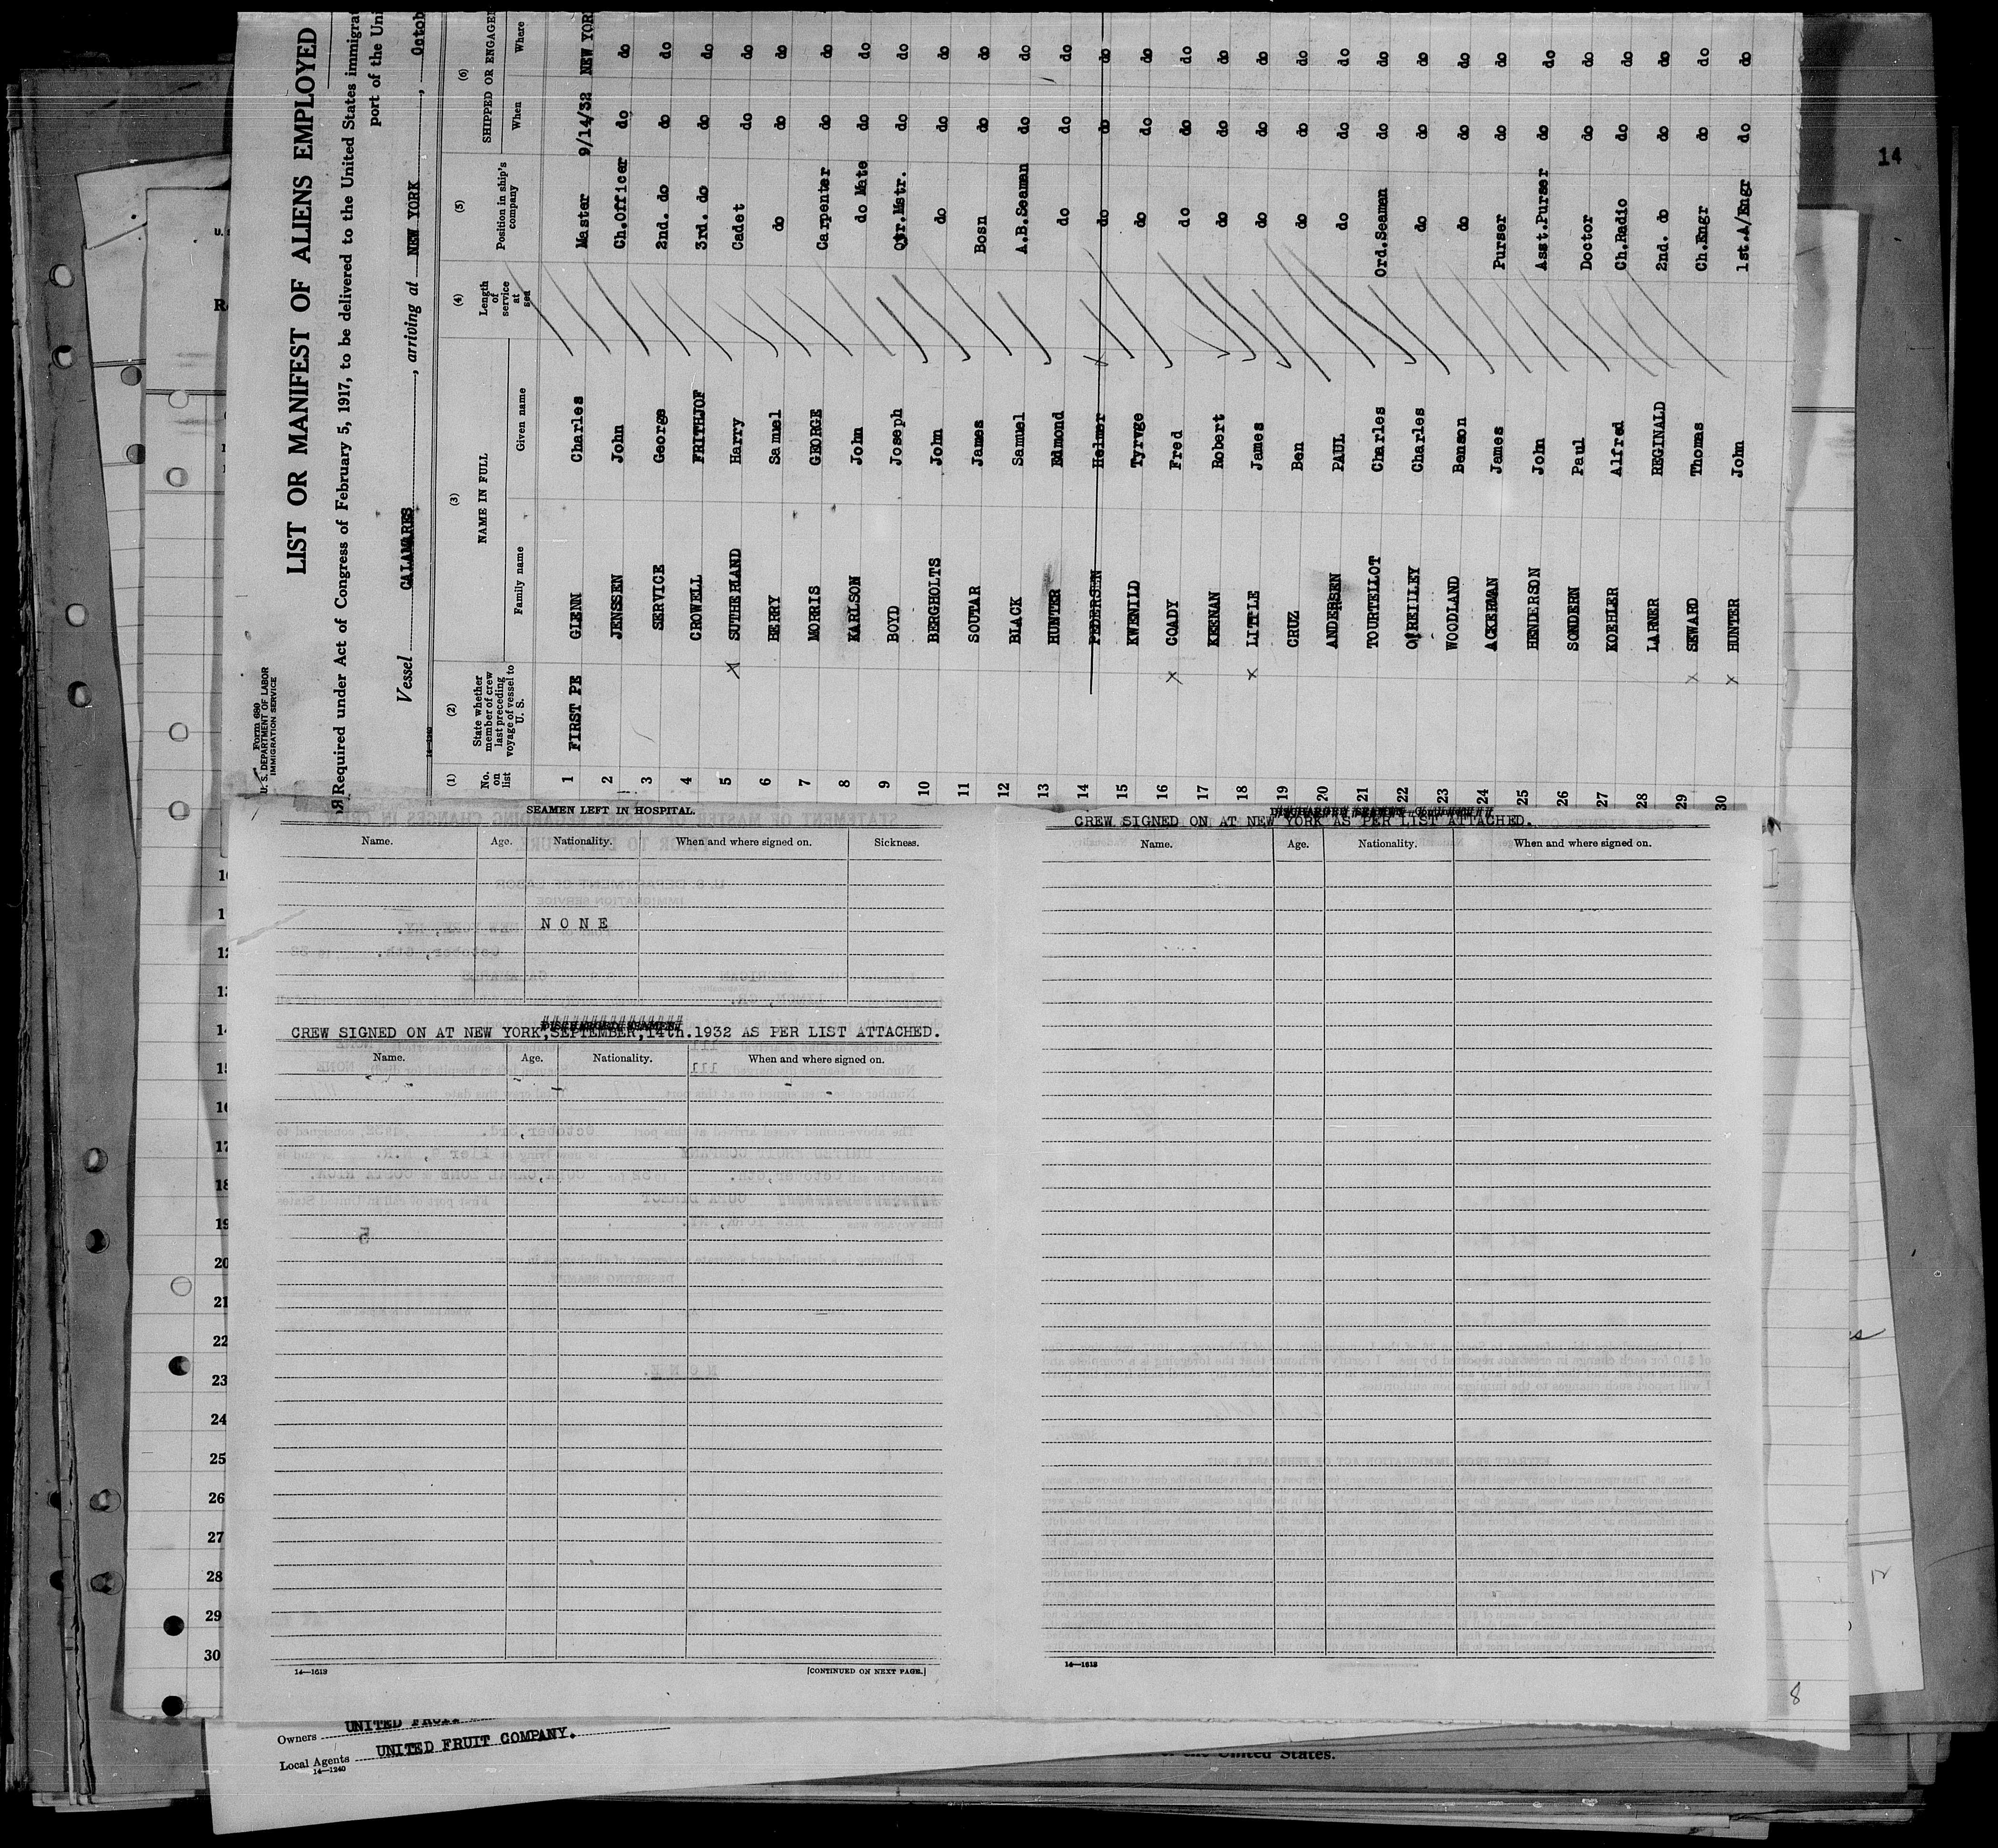 Form 680
U. S. DEPARTMENT OF LABOR
IMMIGRATION SERVICE
LIST OR MANIFEST OF ALIENS EMPLOYED
Required under Act of Congress of February 5, 1917, to be delivered to the United States immigrat
port of the Uni
Vessel CALAMARES, arriving at NEW YORK, Octob
14—1240
(1) (2) (3) (4) (5) (6)
No. on list
State whether member of crew last preceding voyage of vessel to U. S.
NAME IN FULL
Family name Given name
Length of service at sea
Position in ship's company
SHIPPED OR ENGAGED
When Where
1 FIRST PE GLENN Charles Master 9/14/32 NEW YOR
2 JENSSEN John Ch.Officer do do
3 SERVICE George 2nd. do do do
4 CROWELL FRITHJOF 3rd. do do do
5 x SUTHERLAND Harry Cadet do do
6 BERRY Samuel do do do
7 MORRIS GEORGE Carpenter do do
8 KARLSON John do Mate do do
9 BOYD Joseph Qtr.Mstr. do do
10 BERGHOLTS John do do do
11 SOUTAR James Bosn do do
12 BLACK Samuel A.B.Seaman do do
13 HUNTER Edmond do do do
14 PEDERSEN Helmer do do do
15 KWENILD Tyrvge do do do
16 x COADY Fred do do do
17 KEENAN Robert do do do
18 x LITTLE James do do do
19 CRUZ Ben do do do
20 ANDERSEN PAUL do do do
21 TOURTELLOT Charles Ord.Seaman do do
22 O'REILLEY Charles do do do
23 WOODLAND Benson do do do
24 ACKERMAN James Purser do do
25 HENDERSON John Asst.Purser do do
26 SONDERN Paul Doctor do do
27 KOEHLER Alfred Ch.Radio do do
28 LARNER REGINALD 2nd. do do do
29 x SEWARD Thomas Ch.Engr do do
30 x HUNTER John 1st.A/Engr do do
14
SEAMEN LEFT IN HOSPITAL.
Name. Age. Nationality. When and where signed on. Sickness.
NONE
DISCHARGED SEAMEN
CREW SIGNED ON AT NEW YORK, SEPTEMBER,14th.1932 AS PER LIST ATTACHED.
Name. Age. Nationality. When and where signed on.
14—1613
[CONTINUED ON NEXT PAGE.]
CREW SIGNED ON AT NEW YORK AS PER LIST ATTACHED.
Name. Age. Nationality. When and where signed on.
14—1613
8
12
13
14
15
16
17
18
19
20
21
22
23
24
25
26
27
28
29
30
Owners UNITED FRUIT
Local Agents UNITED FRUIT COMPANY.
14—1240
the United States.